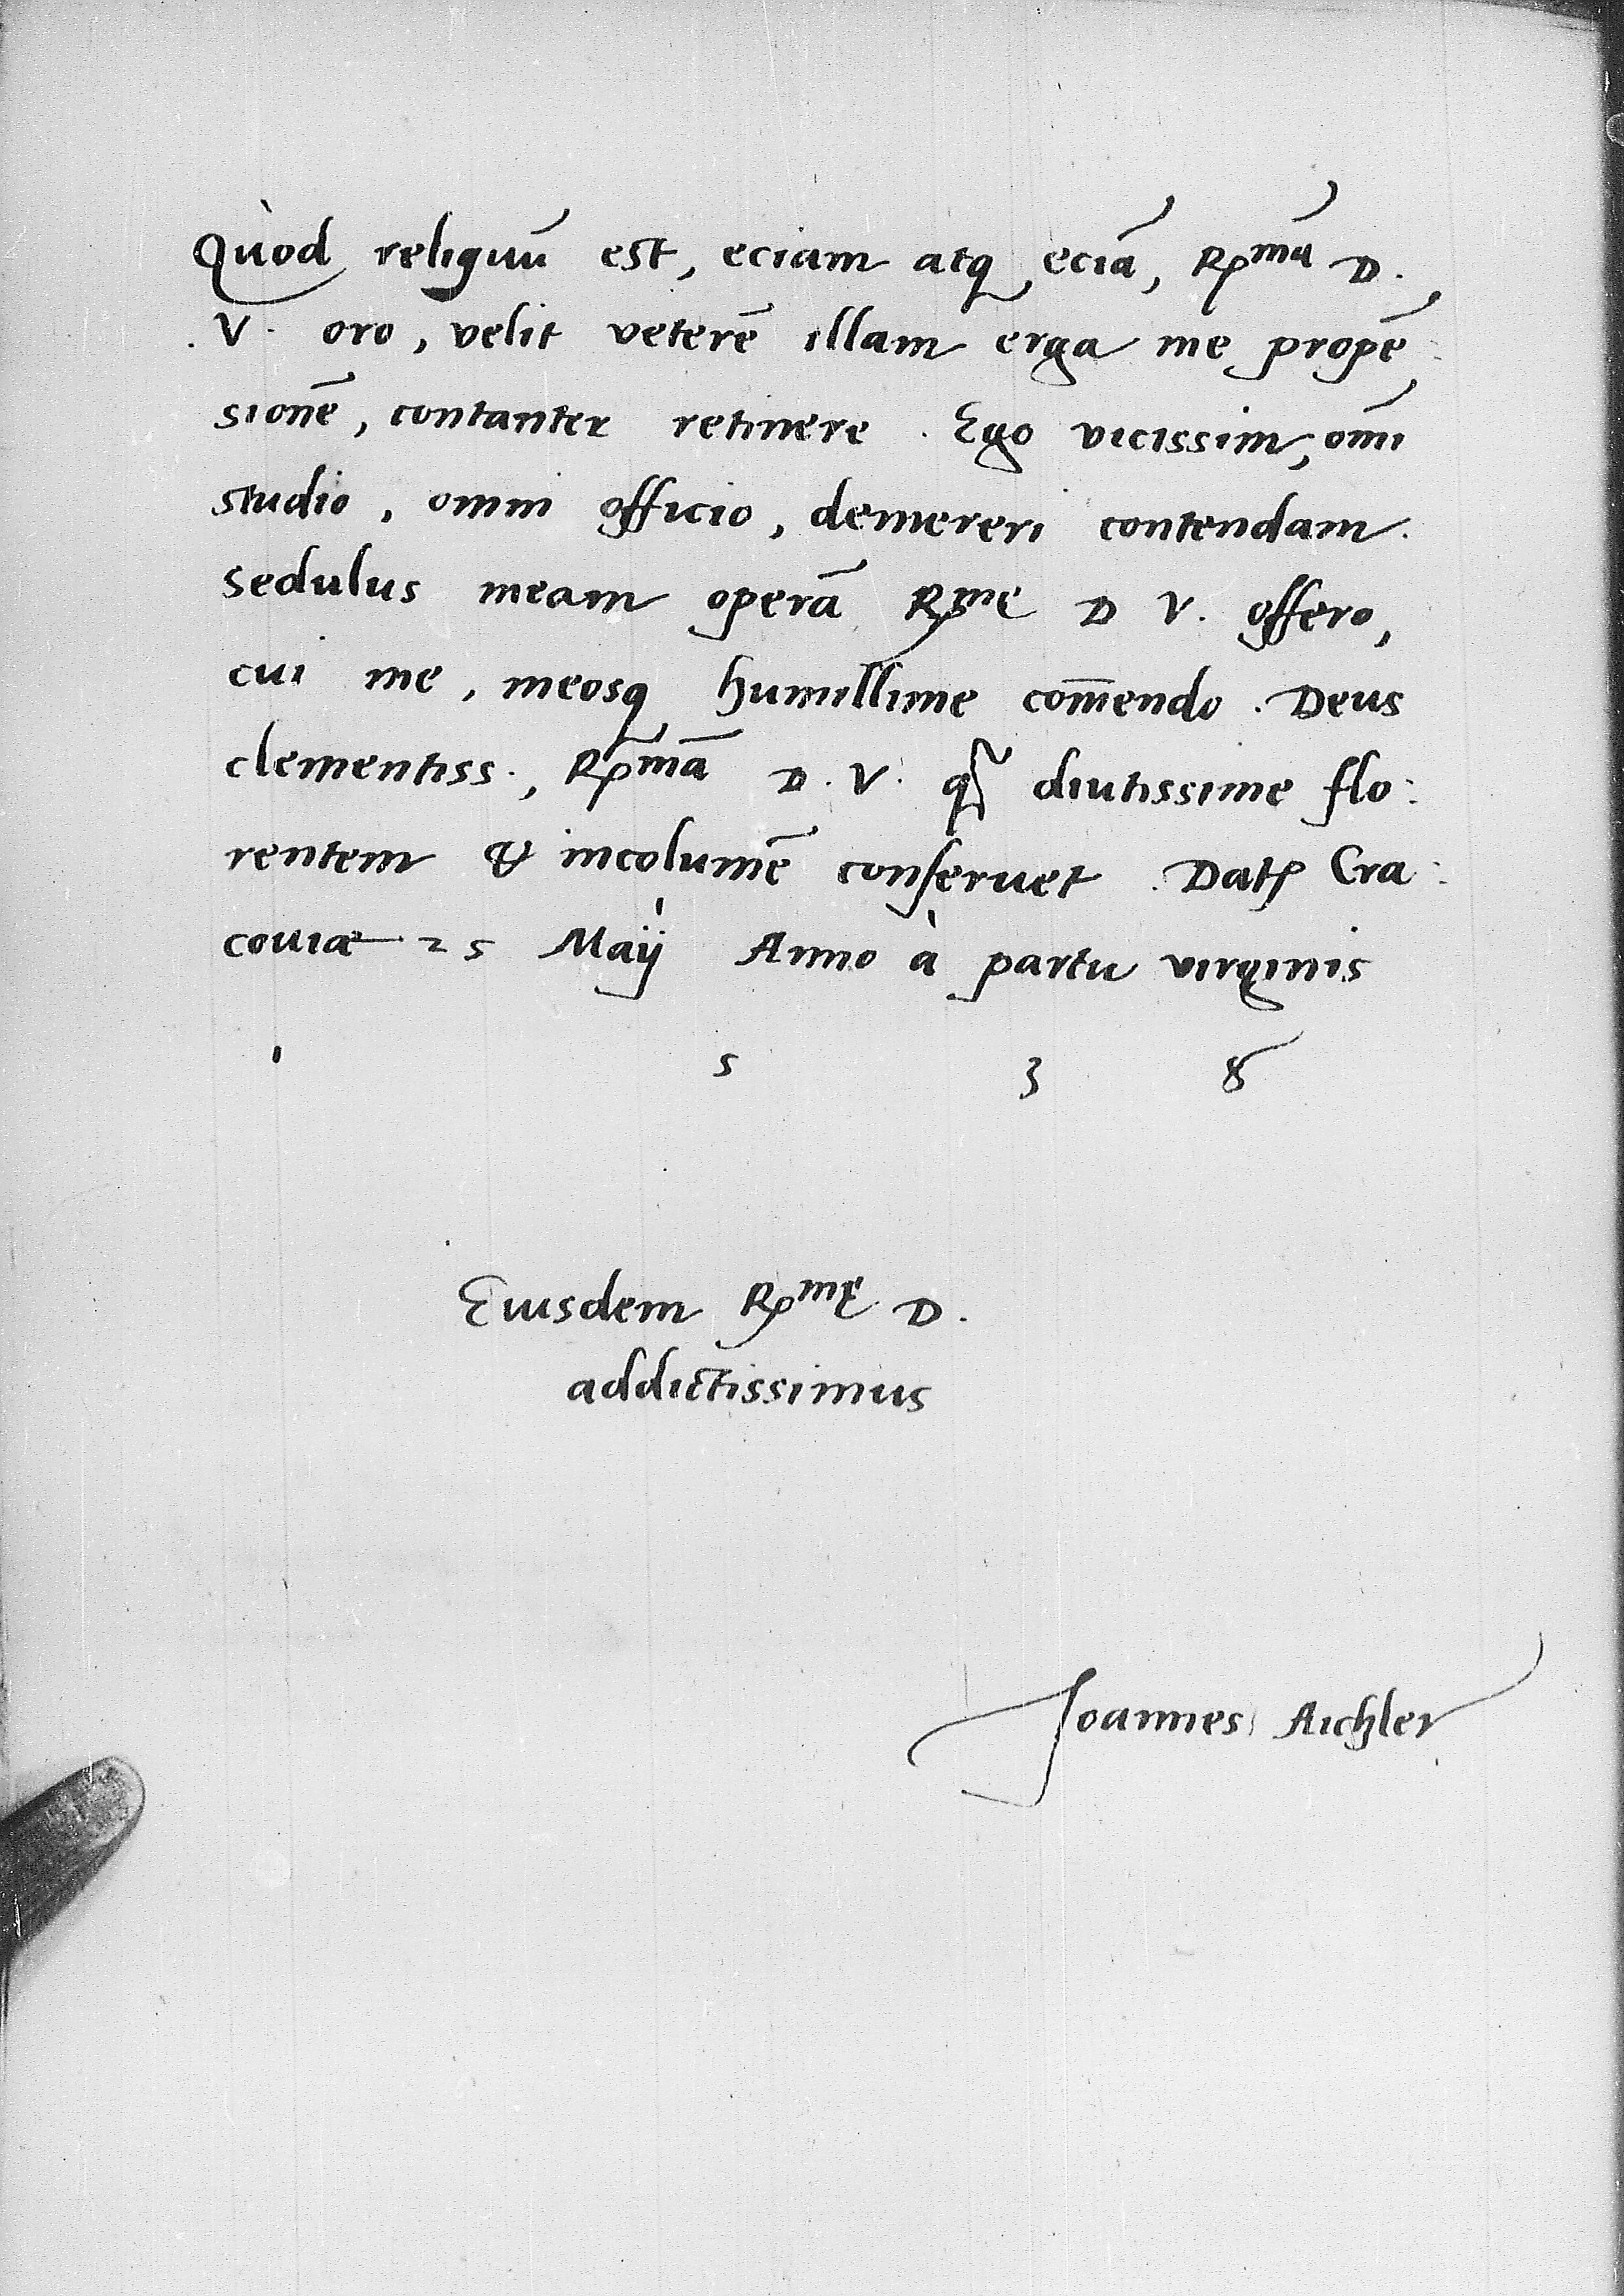 Quòd reliquū est, eciam atq eciā, Rᵐᵃ D.
V. oro, velit veterē illam erga me propē:
sionē, contanter retinere. Ego vicissim, om̄i
studio, omni officio, demereri contendam.
sedulus meam operā Rᵐᵉ D V. offero,
cui me, meosq humillime com̄endo. Deus
clementiss., Rᵐᵃ D. V. q̃ diutissime flo:
rentem & incolumē conseruet. Dat Cra:
couiæ 25 Maÿ Anno à partu virginis
1 5 3 8
Eiusdem Rᵐę D.
addictissimus
Joannes Aichler